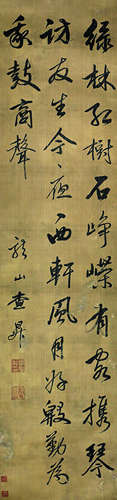 綠林紅樹石崢嶸有客攜琴
訪友生今夜西軒風月好殷勤為
我鼓商聲
龍山查昇